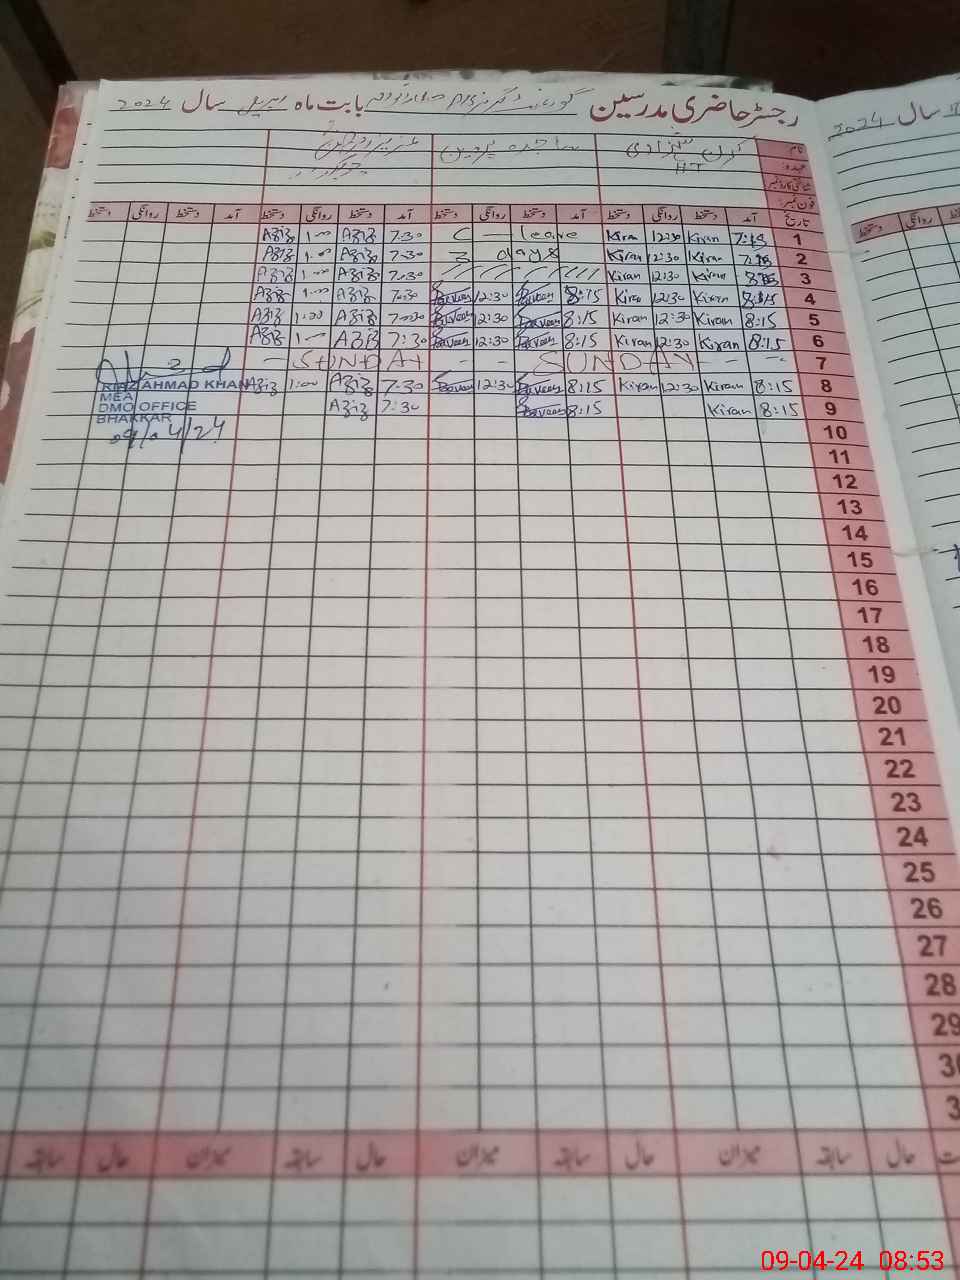 رجسٹر حاضری مدرسین گورنمنٹ گرلز بابت ماہ اپریل سال 2024
سال 2024
نام کرن شہزادی ساجدہ پروین
عہدہ HT
شناختی کارڈ نمبر
فون نمبر:
تاریخ آمد دستخط روانگی دستخط آمد دستخط روانگی دستخط آمد دستخط روانگی دستخط آمد دستخط روانگی دستخط
روانگی دستخط
1 Kiran 12:30 Kiran C — leave 7.30 Aziz 1.00 Aziz
2 Kiran 12:30 Kiran 3 days 7.30 Aziz 1.00 Aziz
3 Kiran 12:30 Kiran 7.30 Aziz 1.00 Aziz
4 8:15 Kiran 12:30 Kiran 8:15 Parveen 12:30 Parveen 7.30 Aziz 1.00 Aziz
5 8:15 Kiran 12:30 Kiran 8:15 Parveen 12:30 Parveen Aziz 1.00 Aziz
6 8:15 Kiran 12:30 Kiran 8:15 Parveen 12:30 Parveen 7:30 Aziz 1.00 Aziz
7 SUNDAY SUNDAY
8 8:15 Kiran 12:30 Kiran 8:15 Parveen 12:30 Parveen 7.30 Aziz 1:00 Aziz
9 8:15 Kiran 8:15 Parveen 7:30 Aziz
RIAZ AHMAD KHAN
MEA
DMO OFFICE
BHAKKAR
09/04/24
10
11
12
13
14
15
16
17
18
19
20
21
22
23
24
25
26
27
28
29
حال سابقہ میزان حال سابقہ میزان حال سابقہ میزان حال سابقہ
09-04-24 08:53